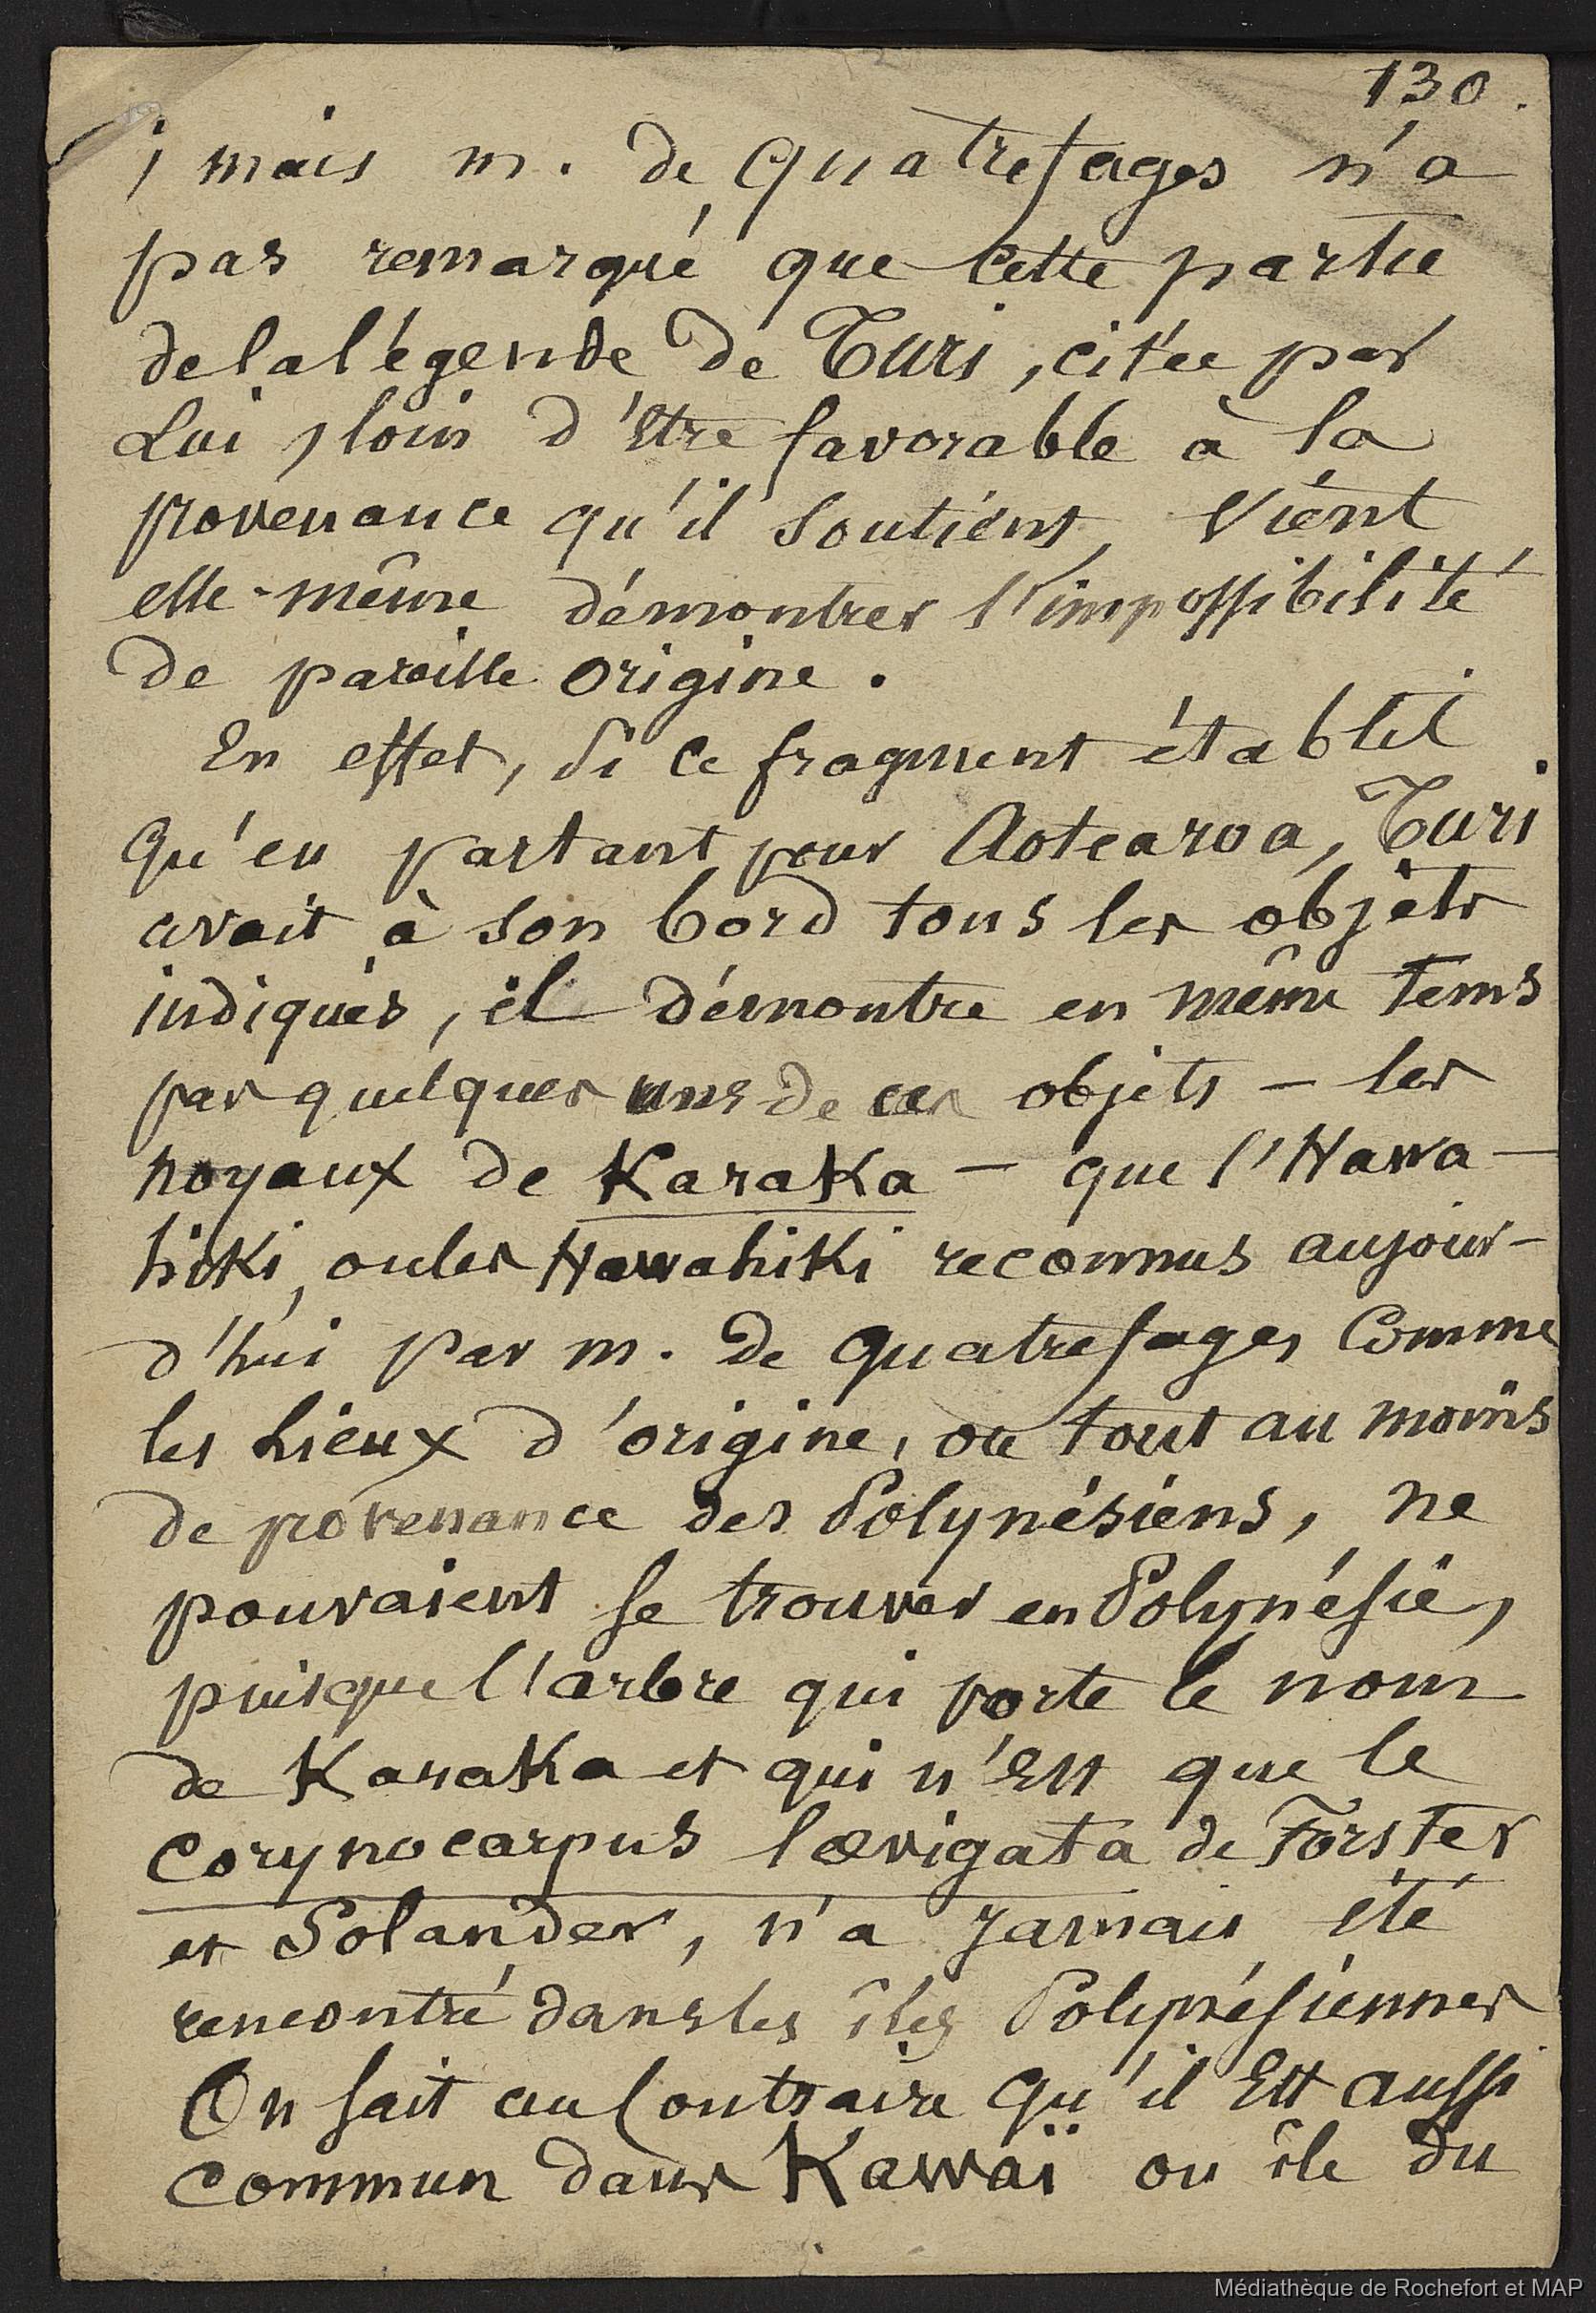 130.
; mais m. de Quatrefages n'a
pas remarqué que cette partie
de la légende de Turi, citée par
Lui, loin d'Etre favorable à la
provenance qu'il soutient, Vient
elle-même démontrer l'impossibilité
de pareille origine.
En effet, si ce fragment établit
Qu'en partant pour Aotearoa, Turi
avait à son bord tous les objets
indiqués, il démontre en même tems
par quelques uns de ces objets — les
noyaux de Karaka — que l'Hawa-
hiki, ou les Hawahiki reconnus aujour-
d'hui par m. de quatrefages Comme
les Lieux d'origine, ou tout au moins
de provenance des Polynésiens, ne
pouvaient se trouver en Polynésie,
puisque l'arbre qui porte le nom
de Karaka et qui n'Est que le
corynocarpus lœvigata de Forster
et Solander, n'a jamais été
rencontré dans les îles Polynésiennes
On sait au Contraire Qu'il Est aussi
commun dans Kawaï ou île du
Médiathèque de Rochefort et MAP